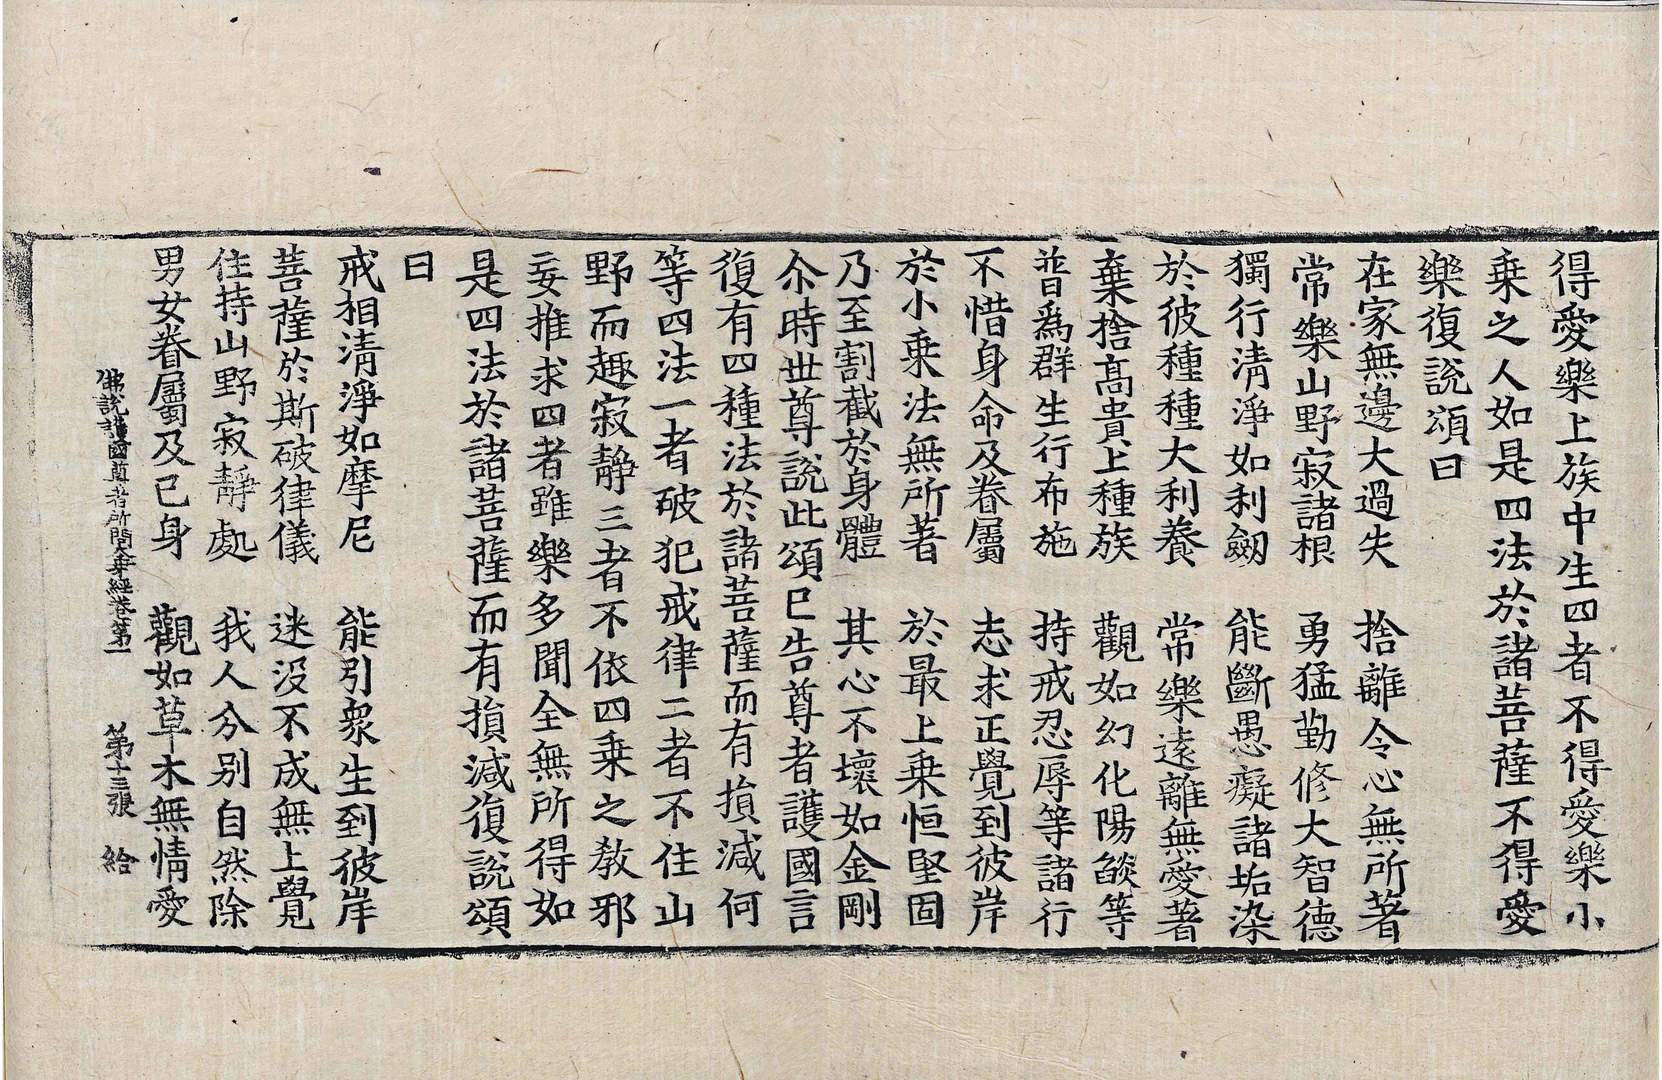 得愛樂上族中生四者不得愛樂小
乗之人如是四法於諸菩薩不得愛
樂復說頌曰
在家無邊大過失　捨離令心無所著
常樂山野寂諸根　勇猛勤修大智德
獨行清淨如利劒　能斷愚癡諸垢染
於彼種種大利養　常樂遠離無愛著
棄捨髙貴上種族　觀如幻化陽燄等
普爲群生行布施　持戒忍辱等諸行
不惜身命及眷屬　志求正覺到彼岸
於小乗法無所著　於最上乗恒堅固
乃至割截於身體　其心不壞如金剛
尒時世尊說此頌已告尊者護國言
復有四種法於諸菩薩而有損減何
等四法一者破犯戒律二者不住山
野而趣寂靜三者不依四乗之教邪
妄推求四者雖樂多聞全無所得如
是四法於諸菩薩而有損減復說頌
曰
戒相清淨如摩尼　能引衆生到彼岸
菩薩於斯破律儀　迷没不成無上覺
住持山野寂靜處　我人分別自然除
男女眷屬及已身　觀如草木無情愛
佛說護國尊者所問大乗經卷第一　第十三張　給